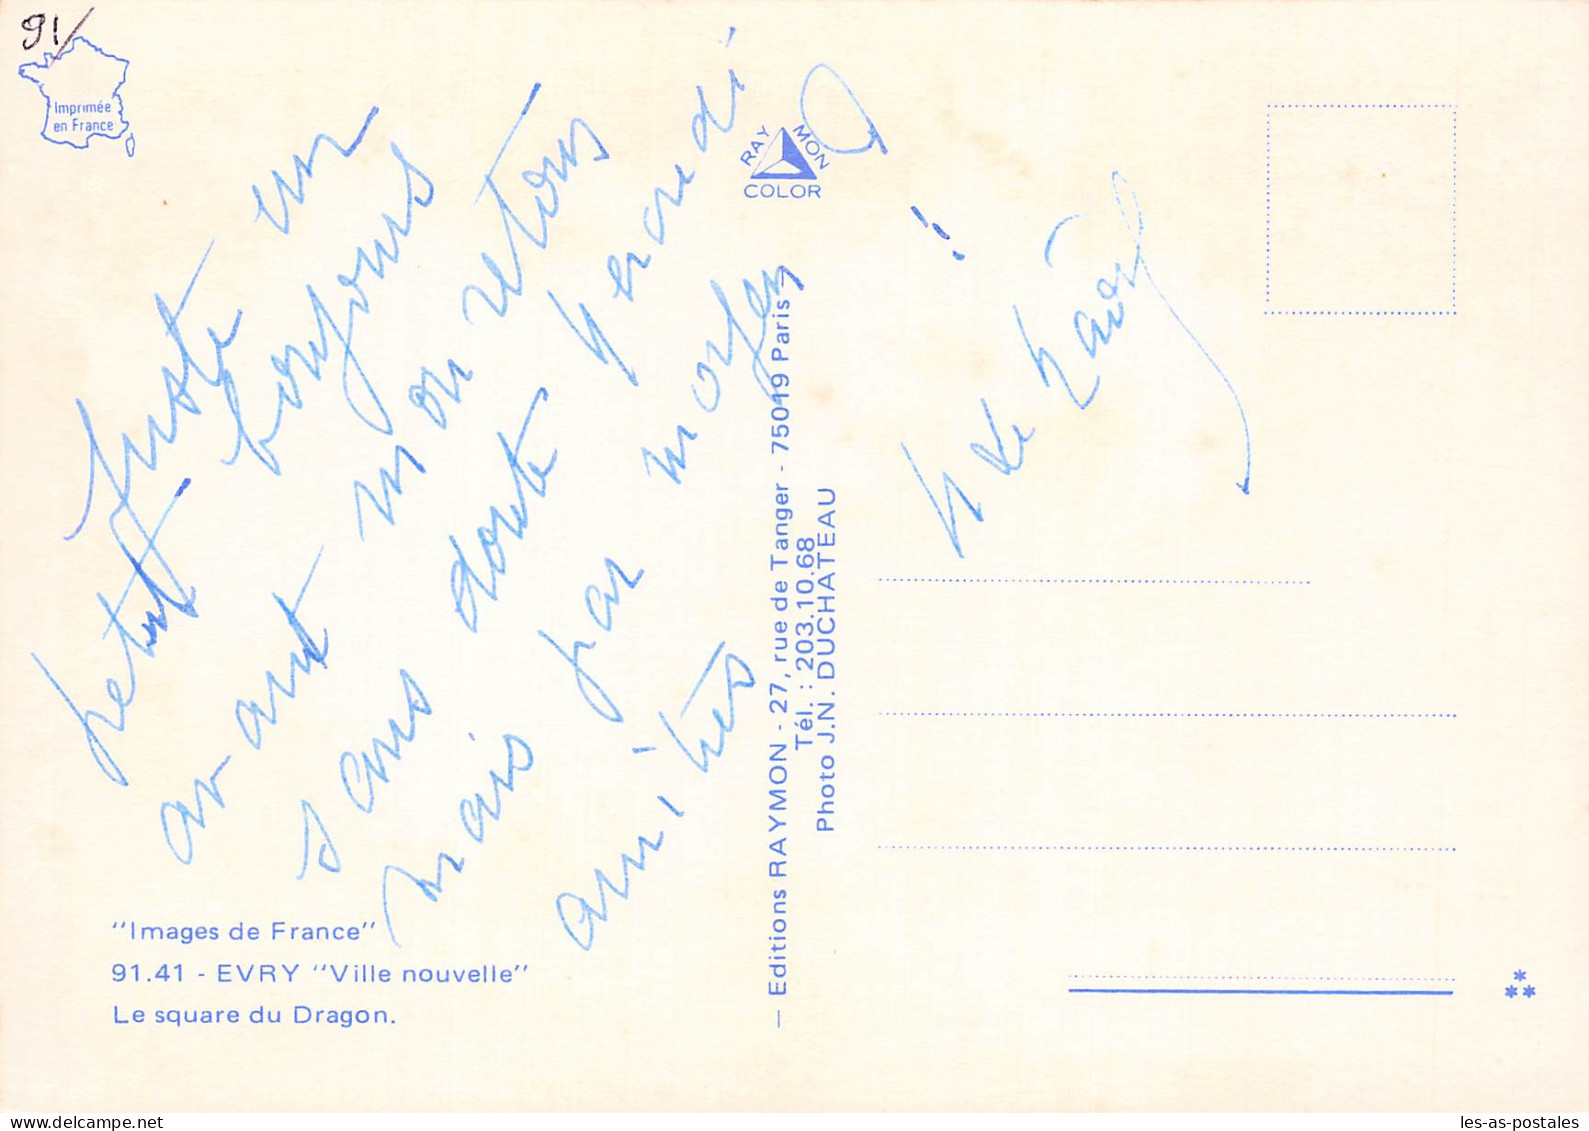 91/
Imprimée
en France
Juste un
petit bonjour
avant mon retour
sans doute Mercredi
mais par moyen
!
amitiés
RAYMON
COLOR
— Editions RAYMON - 27, rue de Tanger - 75019 Paris —
Tél. : 203.10.68
Photo J.N. DUCHATEAU
"Images de France"
91.41 - EVRY "Ville nouvelle"
Le square du Dragon.
les-as-postales